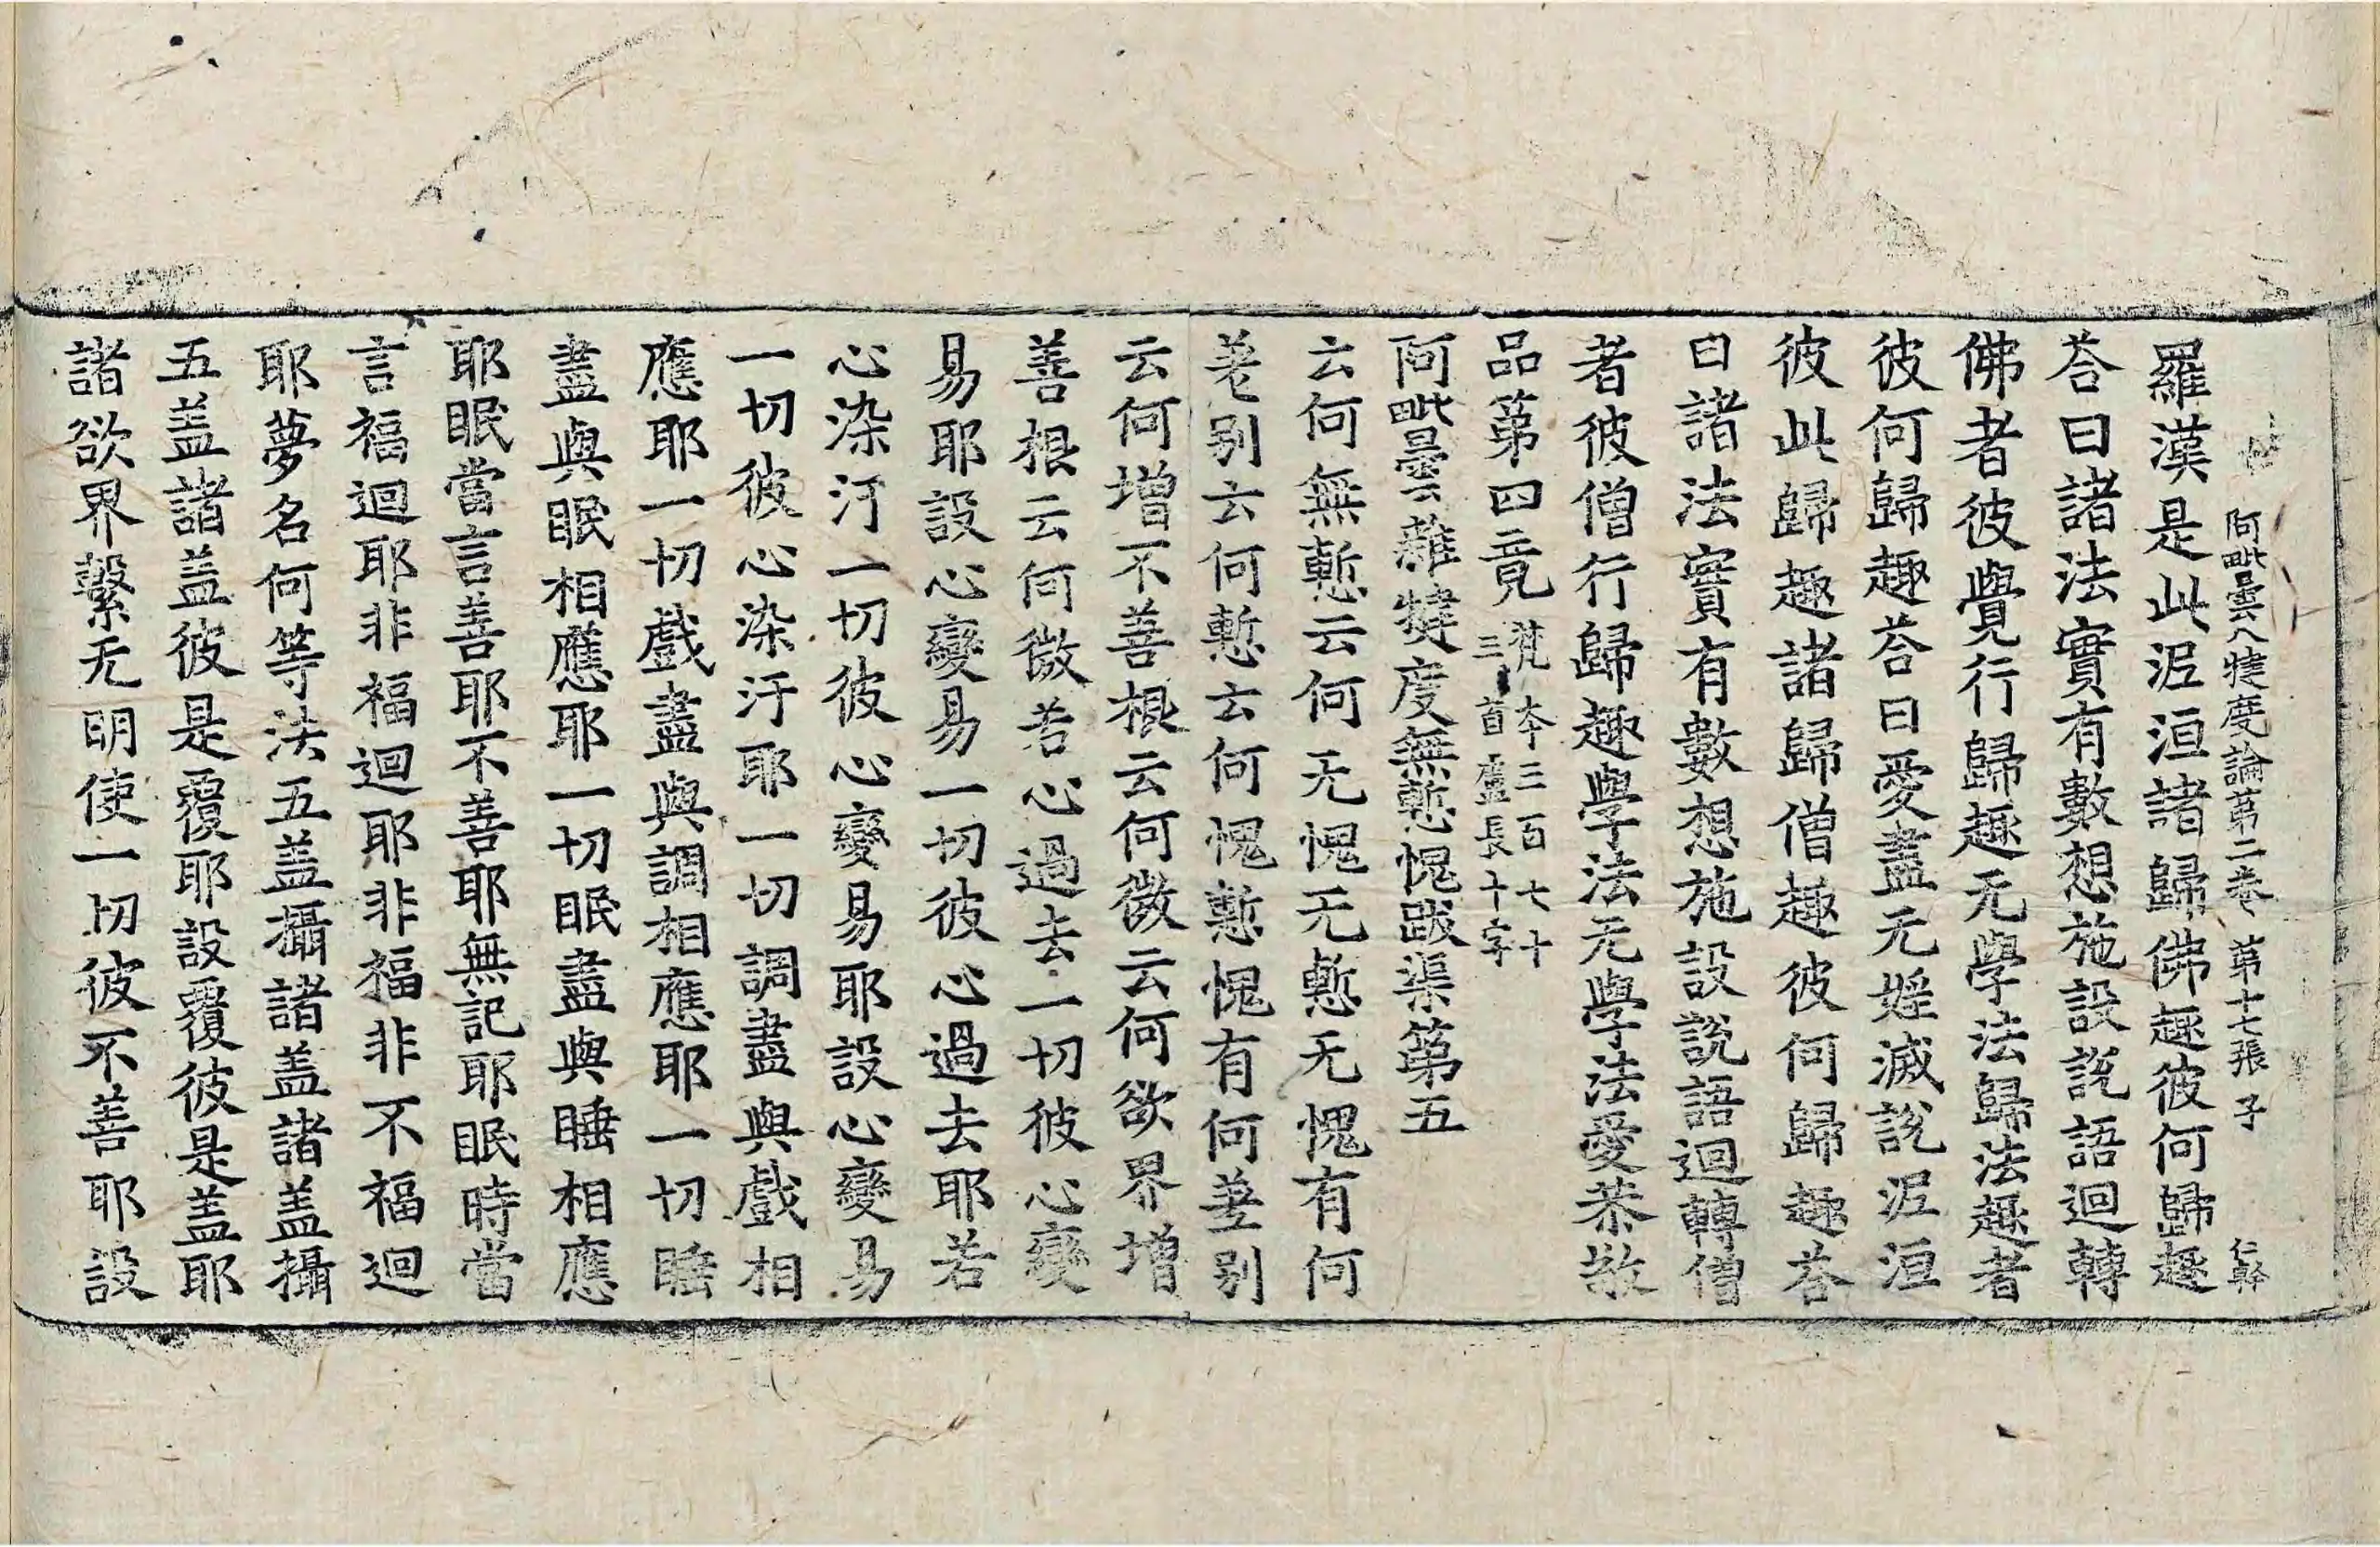 阿毗曇八犍度論第二卷 第十七張 子 仁幹
羅漢是此泥洹諸歸佛趣彼何歸趣
荅曰諸法實有數想施設說語迴轉
佛者彼覺行歸趣无學法歸法趣者
彼何歸趣荅曰愛盡无婬滅說泥洹
彼此歸趣諸歸僧趣彼何歸趣荅
曰諸法實有數想施設說語迴轉僧
者彼僧行歸趣學法无學法愛恭敬
品第四竟 梵本三百七十三首盧長十字
阿毗曇雜犍度無慙愧跋渠第五
云何無慙云何无愧无慙无愧有何
差別云何慙云何愧慙愧有何差別
云何增不善根云何微云何欲界增
善根云何微若心過去一切彼心變
易耶設心變易一切彼心過去耶若
心染汙一切彼心變易耶設心變易
一切彼心染汙耶一切調盡與戲相
應耶一切戲盡與調相應耶一切睡
盡與眠相應耶一切眠盡與睡相應
耶眠當言善耶不善耶無記耶眠時當
言福迴耶非福迴耶非福非不福迴
耶夢名何等法五盖攝諸盖諸盖攝
五盖諸盖彼是覆耶設覆彼是盖耶
諸欲界繫无明使一切彼不善耶設